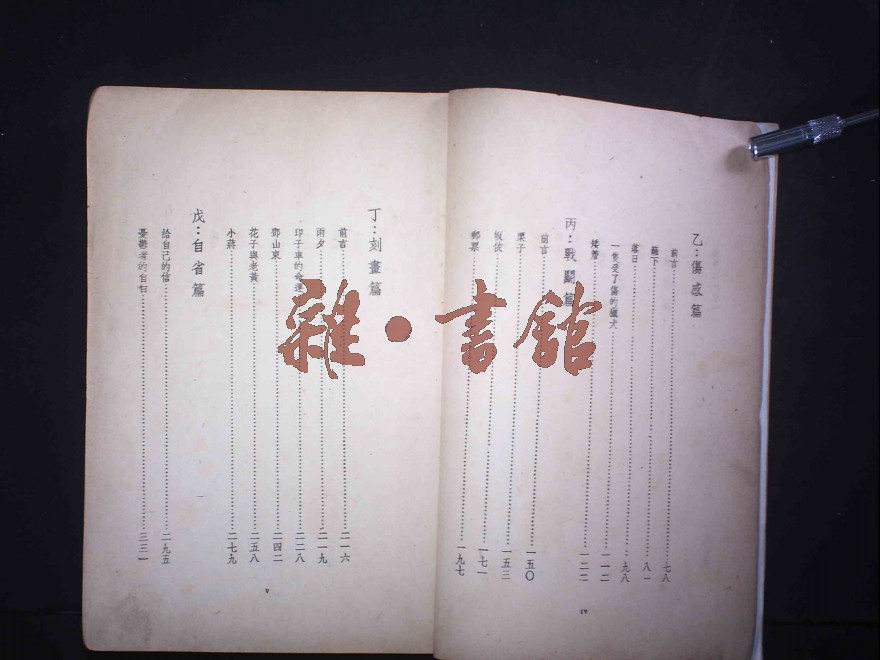 乙：傷感篇
前言……七八
籬下……八一
落日……九八
一隻受了傷的獵犬……一一二
矮簷……一二二
丙：戰鬪篇
前言……一五〇
栗子……一五三
坂坡……一七一
郵票……一九七
iv
丁：刻畫篇
前言……二一六
雨夕……二一九
印子車的命運……二二八
鄧山東……二四二
花子與老黃……二五八
小蔣……二七九
戊：自省篇
給自己的信……二九五
憂鬱者的自白……三三一
v
雜·書舘